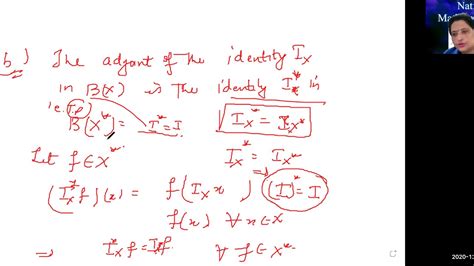 Nat
Ma
b) The adjoint of the identity I_x
in B(X) is the identity I_x^* in
i.e.
B(X^*) = I^* = I
I_x^* = I_x^*
Let f ∈ X^*
I_x^* = I_x^*
(I_x^* f)(x) = f(I_x x)
(I)^* = I
f(x) ∀ x ∈ X
⇒ I_x^* f = f ∀ f ∈ X^*
2020-1